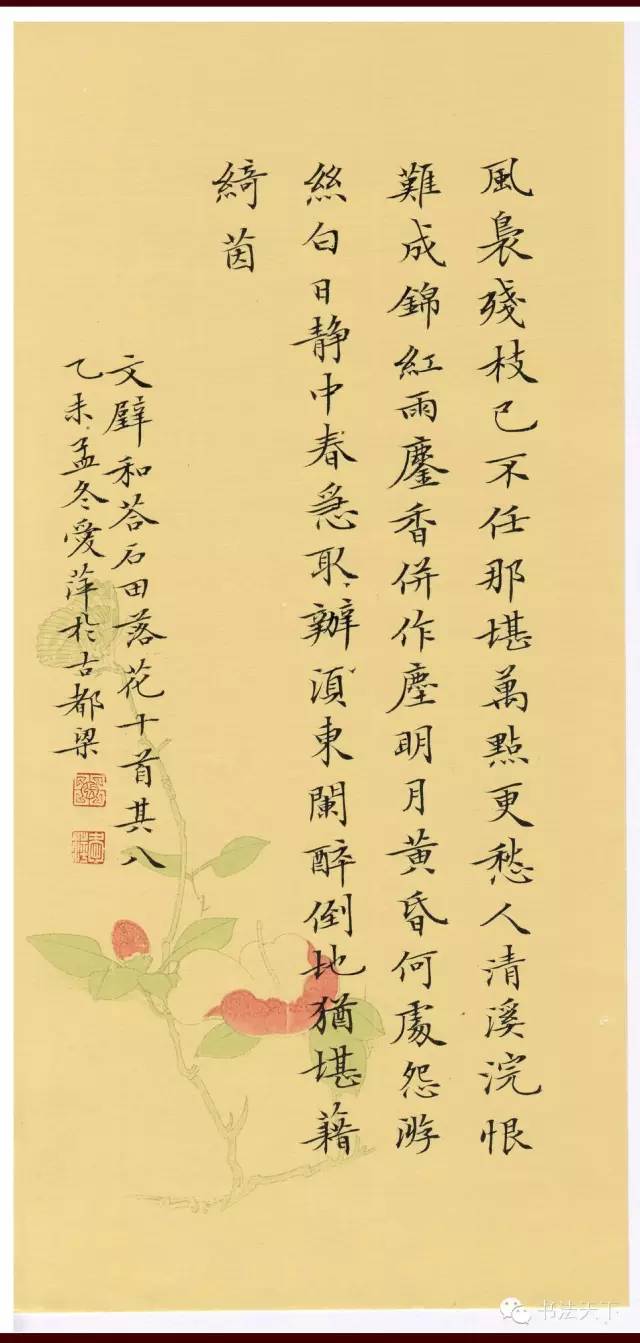 風裊殘枝已不任那堪萬點更愁人清溪浣恨
難成錦紅雨鏖香併作塵明月黃昏何處怨游
絲白日靜中春急取辦湏東闌醉倒地猶堪藉
綺茵
文壁和荅石田落花十首其八
乙未孟冬愛萍於古都梁
书法天下